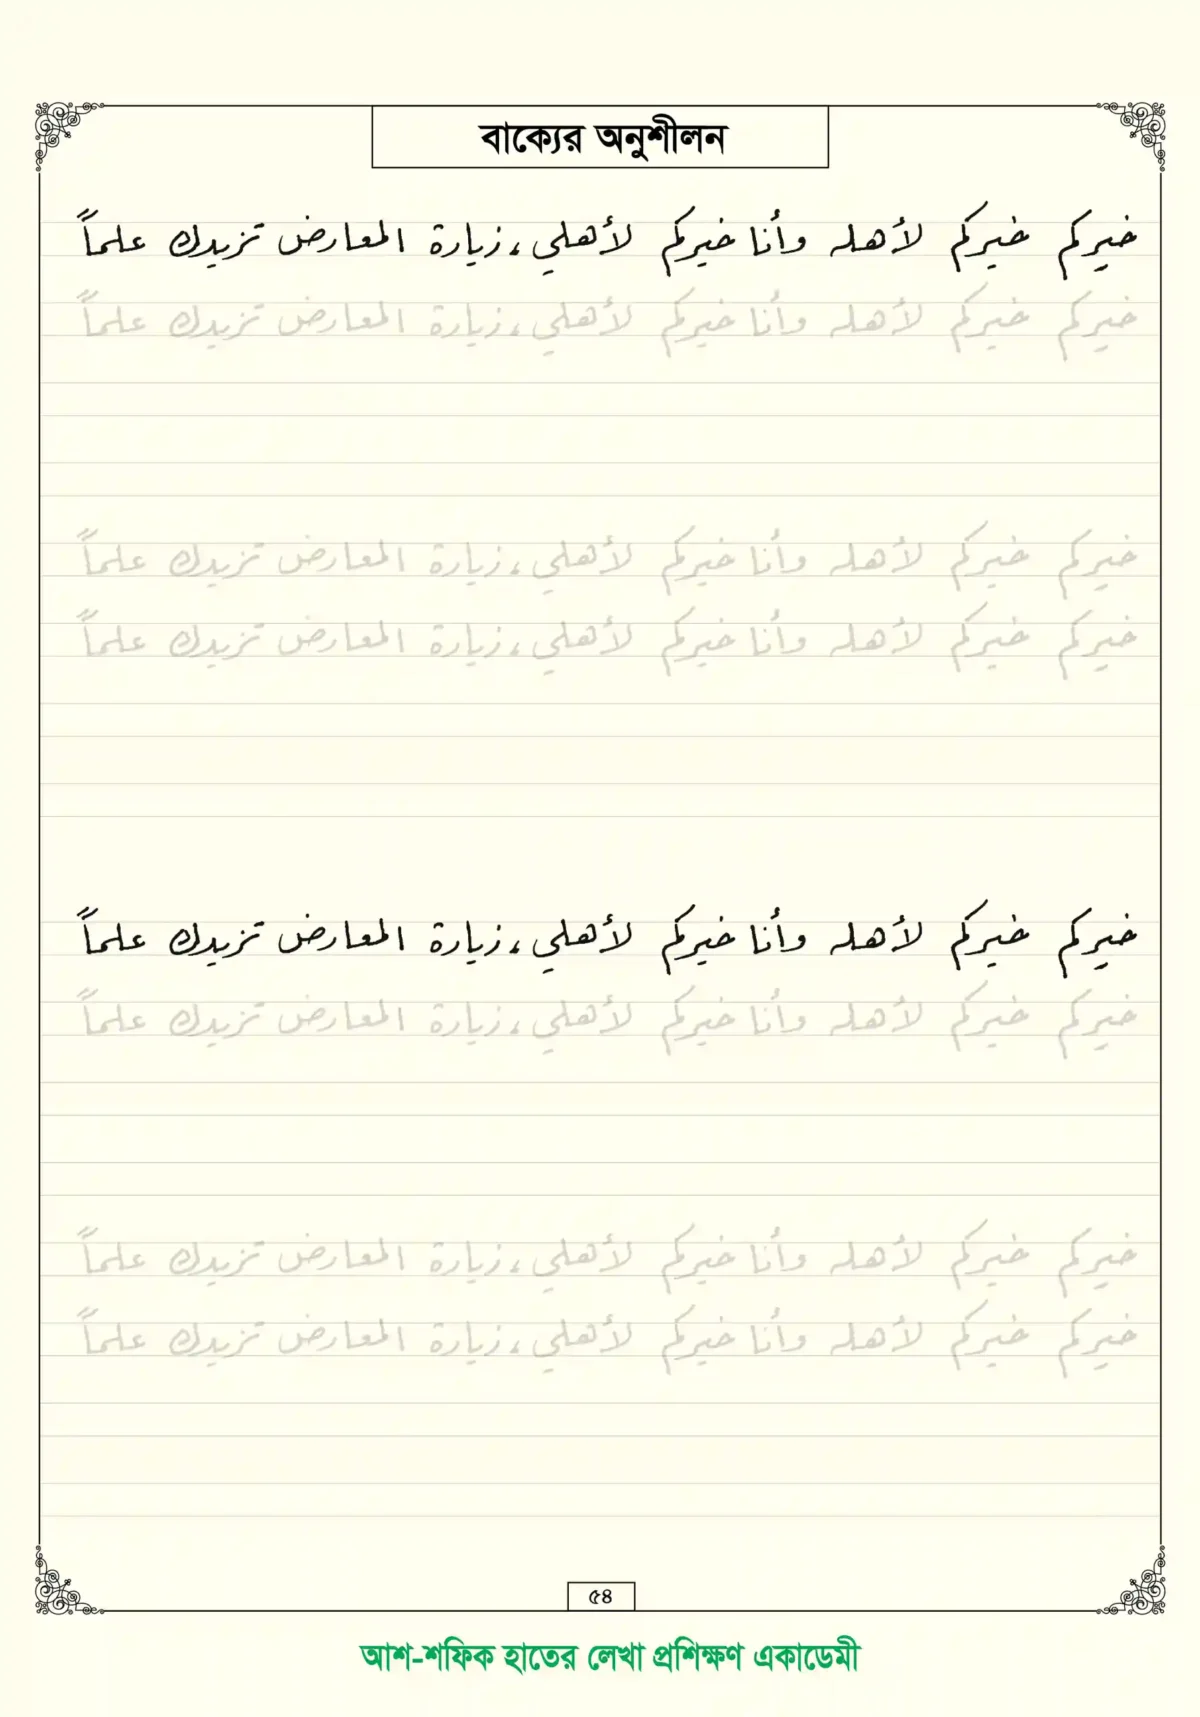 বাক্যের অনুশীলন
خيركم خيركم لأهله وأنا خيركم لأهلي، زيارة المعارض تزيدك علماً
خيركم خيركم لأهله وأنا خيركم لأهلي، زيارة المعارض تزيدك علماً
خيركم خيركم لأهله وأنا خيركم لأهلي، زيارة المعارض تزيدك علماً
خيركم خيركم لأهله وأنا خيركم لأهلي، زيارة المعارض تزيدك علماً
خيركم خيركم لأهله وأنا خيركم لأهلي، زيارة المعارض تزيدك علماً
خيركم خيركم لأهله وأنا خيركم لأهلي، زيارة المعارض تزيدك علماً
خيركم خيركم لأهله وأنا خيركم لأهلي، زيارة المعارض تزيدك علماً
خيركم خيركم لأهله وأنا خيركم لأهلي، زيارة المعارض تزيدك علماً
৫৪
আশ-শফিক হাতের লেখা প্রশিক্ষণ একাডেমী